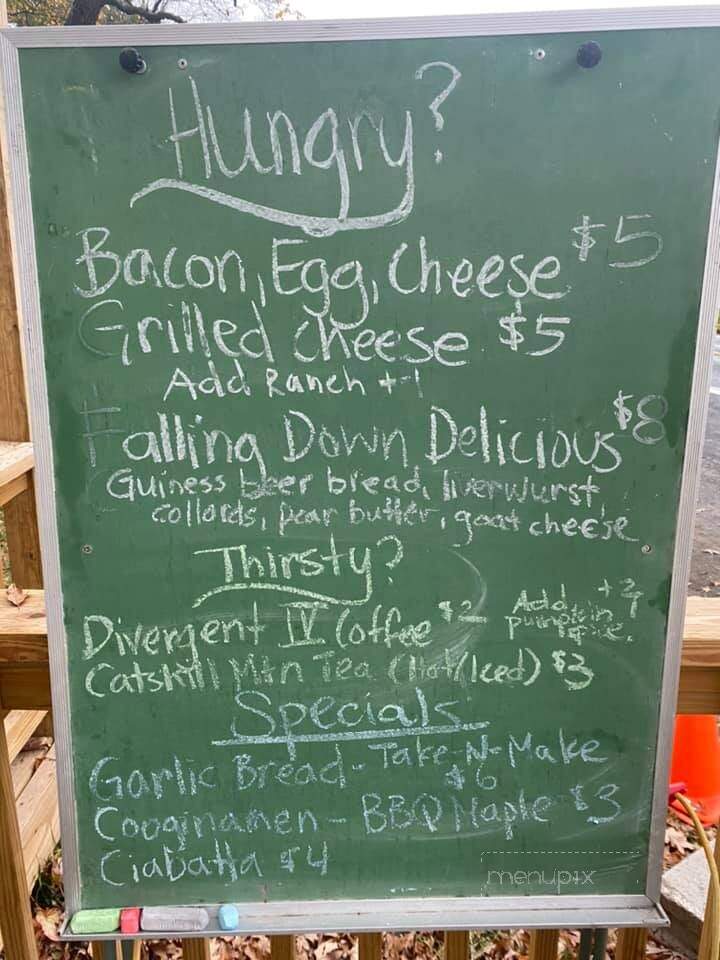 Hungry?
Bacon, Egg, Cheese $5
Grilled cheese $5
Add Ranch +1
Falling Down Delicious $8
Guiness beer bread, liverwurst,
collords, pear butter, goat cheese
Thirsty?
Divergent IV Coffee $2 Add pumpkin
Catskill Mtn Tea (Hot/Iced) $3
Specials
Garlic Bread - Take-N-Make
$6
Cooginamen - BBQ Maple $3
Ciabatta $4
menupix